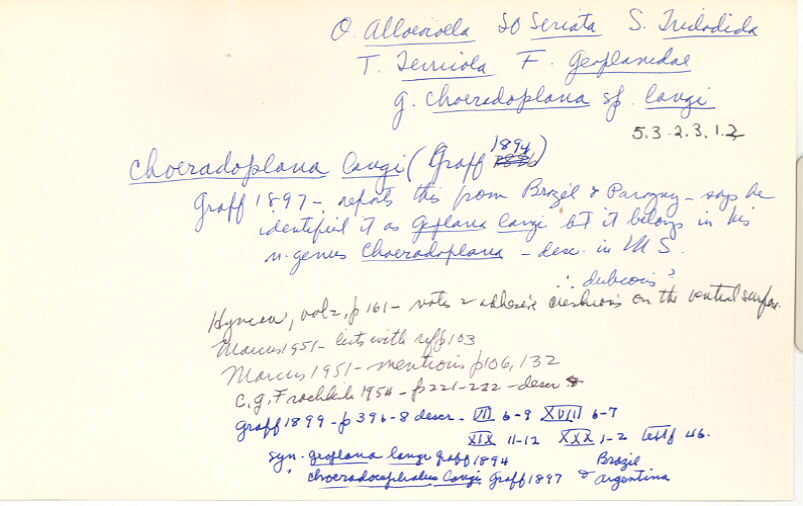 O. Alloeocoela SO Seriata S. Tricladida
T. Terricola F. Geoplanidae
g. Choeradoplana sp. langi
5.3.2.3.1.2
Choeradoplana langi (Graff 1894)
Graff 1897 - reports this from Brazil & Paraguay - says he
identified it as Geoplana langi but it belongs in his
n. genus Choeradoplana - desc. in MS.
∴ dubious?
Hyman, vol 2, p 161 - notes 2 adhesive cushions on the ventral surface.
Marcus 1951 - lists with ref p 103
Marcus 1951 - mentions p 106, 132
C.G. Froehlich 1954 - p 221-232 - descr
Graff 1899 - p 396-8 descr. - VII 6-9 XVIII 6-7
XIX 11-12 XXX 1-2 textf 46.
syn. geoplana langi graff 1894 Brazil
choeradocephalus langi Graff 1897 & Argentina